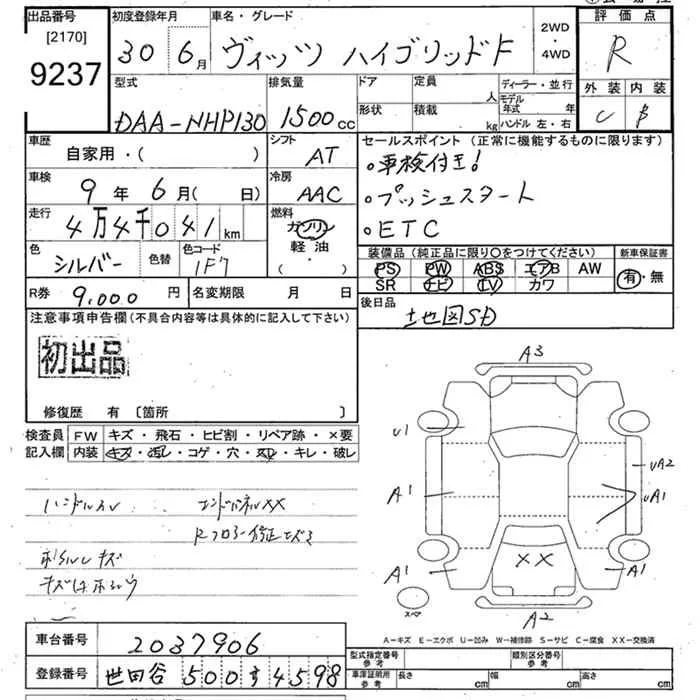 出品番号 初度登録年月 車名・グレード 評価点
[2170]
9237
30年6月 ヴィッツ ハイブリッドF 2WD・4WD R
型式 排気量 ドア 定員 ディーラー・並行 外装 内装
人 モデル年式 年
DAA-NHP130 1500cc 形状 積載 kg ハンドル 左・右 C B
車歴 シフト セールスポイント (正常に機能するものに限ります)
自家用・( ) AT
・車検付き!
車検 冷房
9年6月( 日) AAC
・プッシュスタート
走行 燃料
4万4千041km ガソリン
・ETC
軽油・( )
色 シルバー 色替 色コード 1F7
装備品 (純正品に限り○をつけてください) 新車保証書
PS PW ABS エアB AW 有・無
SR ナビ TV カワ
R券 9,000円 名変期限 月 日
後日品
地図SD
注意事項申告欄 (不具合内容等は具体的に記入して下さい)
初出品
修復歴 有 〔箇所 〕
検査員 FW キズ・飛石・ヒビ割・リペア跡・×要
記入欄 内装 キズ・汚レ・コゲ・穴・スレ・キレ・破レ
ハンドルスレ エンドパネルXX
Rフロアー修正キズ
キズ
A3
U1
UA2
A1
UA1
XX
A1
A1
スペア
A2
A-キズ E-エクボ U-凹み W-補修跡 S-サビ C-腐食 XX-交換済
車台番号 2037906
型式指定番号 参考 類別区分番号 参考
登録番号 世田谷 500 す 4598
車庫証明用 参考 長さ cm 幅 cm 高さ cm